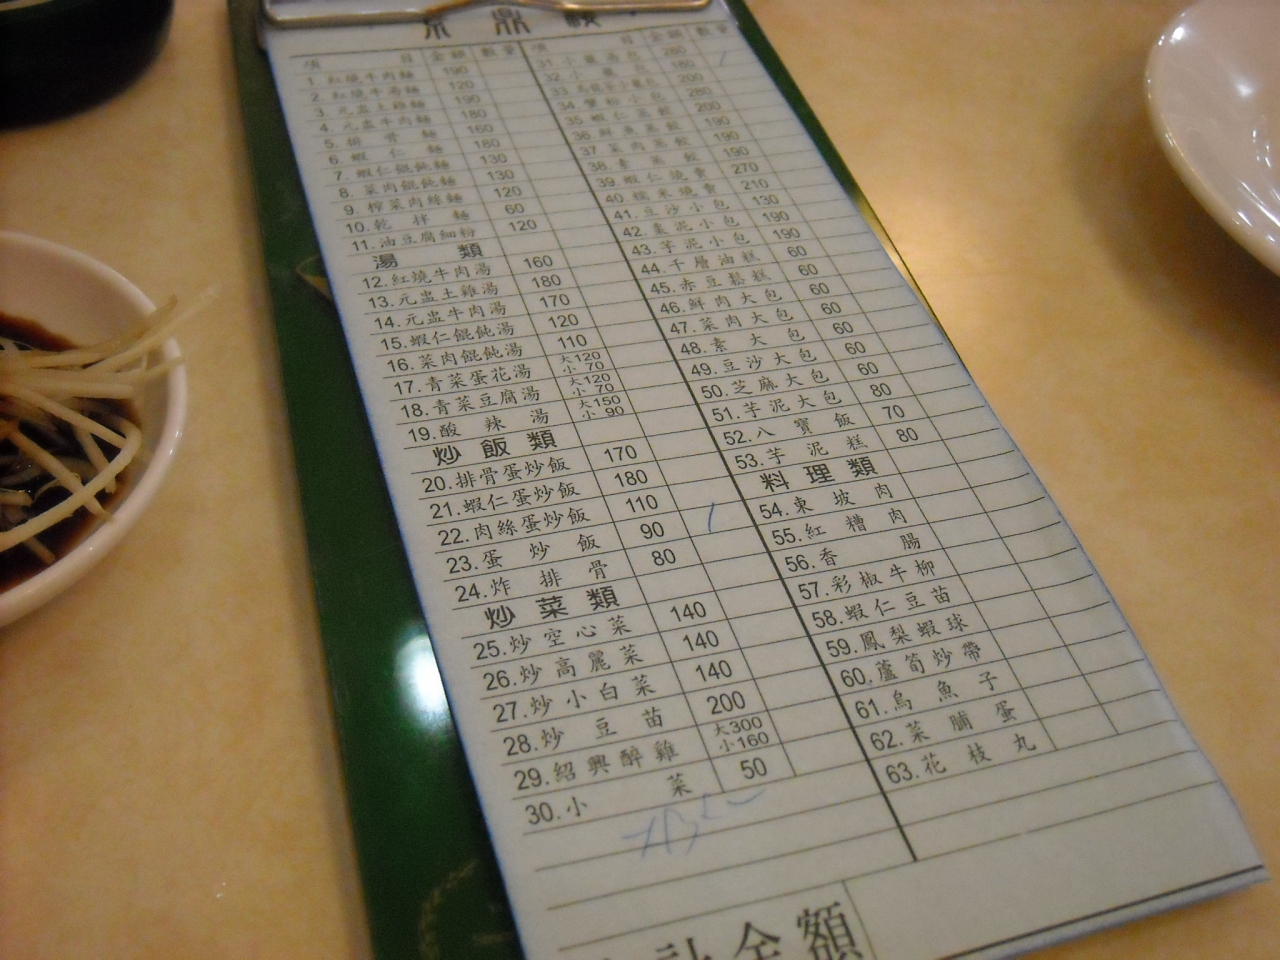 京 鼎 樓
項 目 金額 數量
1. 紅燒牛肉麵 190
2. 紅燒牛湯麵 120
3. 元盅土雞麵 190
4. 元盅牛肉麵 180
5. 排骨麵 160
6. 蝦仁麵 180
7. 蝦仁餛飩麵 130
8. 菜肉餛飩麵 130
9. 榨菜肉絲麵 120
10. 乾拌麵 60
11. 油豆腐細粉 120
湯類
12. 紅燒牛肉湯 160
13. 元盅土雞湯 180
14. 元盅牛肉湯 170
15. 蝦仁餛飩湯 120
16. 菜肉餛飩湯 110
17. 青菜蛋花湯 大120 小 70
18. 青菜豆腐湯 大120 小 70
19. 酸辣湯 大150 小 90
炒飯類
20. 排骨蛋炒飯 170
21. 蝦仁蛋炒飯 180
22. 肉絲蛋炒飯 110
23. 蛋炒飯 90
24. 炸排骨 80
炒菜類
25. 炒空心菜 140
26. 炒高麗菜 140
27. 炒小白菜 140
28. 炒豆苗 200
29. 紹興醉雞 大300 小160
30. 小菜 50
項 目 金額 數量
31. 小籠湯包 280
32. 小籠包 180
33. 烏龍茶小籠包 200
34. 蟹粉小包 280
35. 蝦仁蒸餃 200
36. 鮮魚蒸餃 190
37. 菜肉蒸餃 190
38. 素蒸餃 190
39. 蝦仁燒賣 270
40. 糯米燒賣 210
41. 豆沙小包 130
42. 棗泥小包 190
43. 芋泥小包 190
44. 千層油糕 60
45. 赤豆鬆糕 60
46. 鮮肉大包 60
47. 菜肉大包 60
48. 素大包 60
49. 豆沙大包 60
50. 芝麻大包 60
51. 芋泥大包 80
52. 八寶飯 70
53. 芋泥糕 80
料理類
54. 東坡肉
55. 紅糟肉
56. 香腸
57. 彩椒牛柳
58. 蝦仁豆苗
59. 鳳梨蝦球
60. 蘆筍炒帶
61. 烏魚子
62. 菜脯蛋
63. 花枝丸
計金額